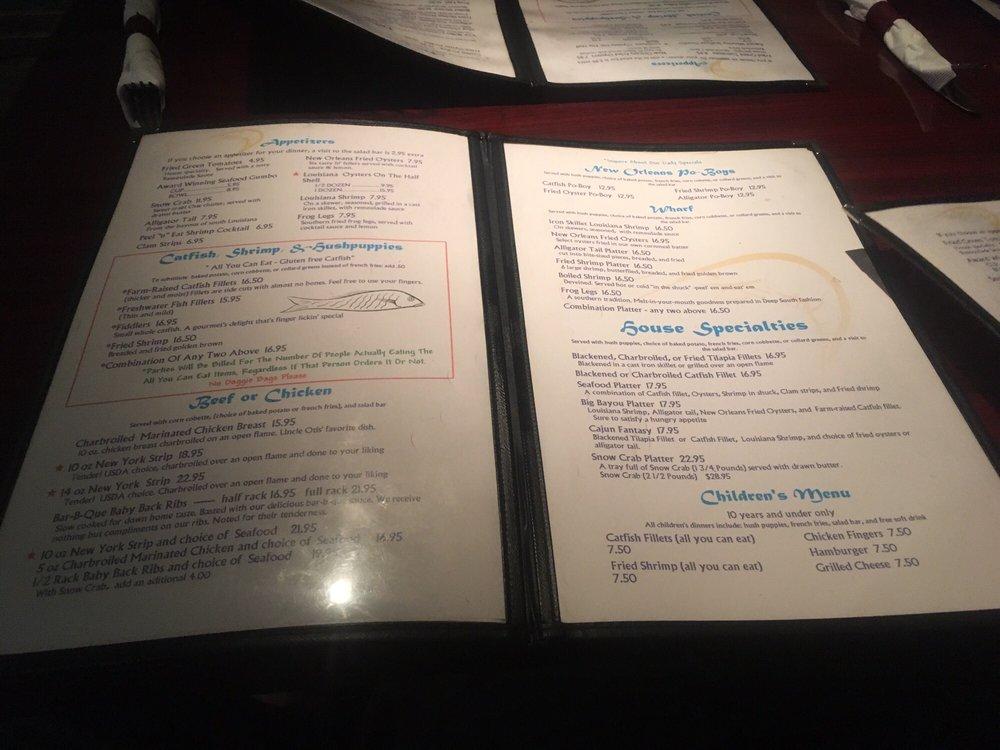 Appetizers
If you choose an appetizer for your dinner, a visit to the salad bar is 2.95 extra
Fried Green Tomatoes 4.95
House specialty. Served with a zesty
Remoulade Sauce
Award Winning Seafood Gumbo
CUP 5.95
BOWL 8.95
Snow Crab 11.95
Sweet crab! One cluster, served with
drawn butter
Alligator Tail 7.95
From the bayous of south Louisiana
Peel "n" Eat Shrimp Cocktail 6.95
Clam Strips 6.95
New Orleans Fried Oysters 7.95
Six tasty lil' fellers served with cocktail
sauce & lemon.
Louisiana Oysters On The Half
Shell
1/2 DOZEN 9.95
1 DOZEN 15.95
Louisiana Shrimp 7.95
On a skewer, seasoned, grilled in a cast
iron skillet, with remoulade sauce
Frog Legs 7.95
Southern fried frog legs, served with
cocktail sauce and lemon
Catfish, Shrimp, & Hushpuppies
"All You Can Eat - Gluten free Catfish"
To substitute baked potato, corn cobbette, or collard greens instead of french fries: add .50
*Farm-Raised Catfish Fillets 16.50
(thicker and moist) Fillets are side cuts with almost no bones. Feel free to use your fingers.
*Freshwater Fish Fillets 15.95
(Thin and mild)
*Fiddlers 16.95
Small whole catfish. A gourmet's delight that's finger lickin' special
*Fried Shrimp 16.50
Breaded and fried golden brown
*Combination Of Any Two Above 16.95
*Parties Will Be Billed For The Number Of People Actually Eating The
All You Can Eat Items, Regardless If That Person Orders It Or Not.
No Doggie Bags Please
Beef or Chicken
Served with corn cobette, (choice of baked potato or french fries), and salad bar
Charbroiled Marinated Chicken Breast 15.95
10 oz. chicken breast charbroiled on an open flame. Uncle Otis' favorite dish.
10 oz New York Strip 18.95
Tender! USDA choice, charbroiled over an open flame and done to your liking
14 oz New York Strip 22.95
Tender! USDA choice. Charbroiled over an open flame and done to your liking
Bar-B-Que Baby Back Ribs —— half rack 16.95 full rack 21.95
Slow cooked for down home taste. Basted with our delicious bar-b-que sauce. We receive
nothing but compliments on our ribs. Noted for their tenderness.
10 oz New York Strip and choice of Seafood 21.95
5 oz Charbroiled Marinated Chicken and choice of Seafood 16.95
1/2 Rack Baby Back Ribs and choice of Seafood
With Snow Crab, add an aditional 4.00
*Inquire About Our Daily Specials
New Orleans Po-Boys
Served with hush puppies, choice of baked potato, french fries, corn cobbette, or collard greens, and a visit to
the salad bar.
Catfish Po-Boy 12.95
Fried Oyster Po-Boy 12.95
Fried Shrimp Po-Boy 12.95
Alligator Po-Boy 12.95
Wharf
Served with hush puppies, choice of baked potato, french fries, corn cobbette, or collard greens, and a visit to
the salad bar.
Iron Skillet Louisiana Shrimp 16.50
On skewers, seasoned, with remoulade sauce
New Orleans Fried Oysters 16.95
Select oysters fried in our own cornmeal batter
Alligator Tail Platter 16.50
cut into bite-sized pieces, breaded, and fried
Fried Shrimp Platter 16.50
8 large shrimp, butterflied, breaded, and fried golden brown
Boiled Shrimp 16.50
Deveined. Served hot or cold "in the shuck" -peel em and eat' em
Frog Legs 16.50
A southern tradition. Melt-in-your-mouth goodness prepared in Deep South fashion.
Combination Platter - any two above 16.50
House Specialties
Served with hush puppies, choice of baked potato, french fries, corn cobbette, or collard greens, and a visit to
the salad bar.
Blackened, Charbroiled, or Fried Tilapia Fillets 16.95
Blackened in a cast iron skillet or grilled over an open flame
Blackened or Charbroiled Catfish Fillet 16.95
Seafood Platter 17.95
A combination of Catfish fillet, Oysters, Shrimp in shuck, Clam strips, and Fried shrimp
Big Bayou Platter 17.95
Louisiana Shrimp, Alligator tail, New Orleans Fried Oysters, and Farm-raised Catfish fillet.
Sure to satisfy a hungry appetite
Cajun Fantasy 17.95
Blackened Tilapia Fillet or Catfish Fillet, Louisiana Shrimp, and choice of fried oysters or
alligator tail.
Snow Crab Platter 22.95
A tray full of Snow Crab (1 3/4 Pounds) served with drawn butter.
Snow Crab (2 1/2 Pounds) $28.95
Children's Menu
10 years and under only
All children's dinners include: hush puppies, french fries, salad bar, and free soft drink
Catfish Fillets (all you can eat)
7.50
Fried Shrimp (all you can eat)
7.50
Chicken Fingers 7.50
Hamburger 7.50
Grilled Cheese 7.50
Appetizers